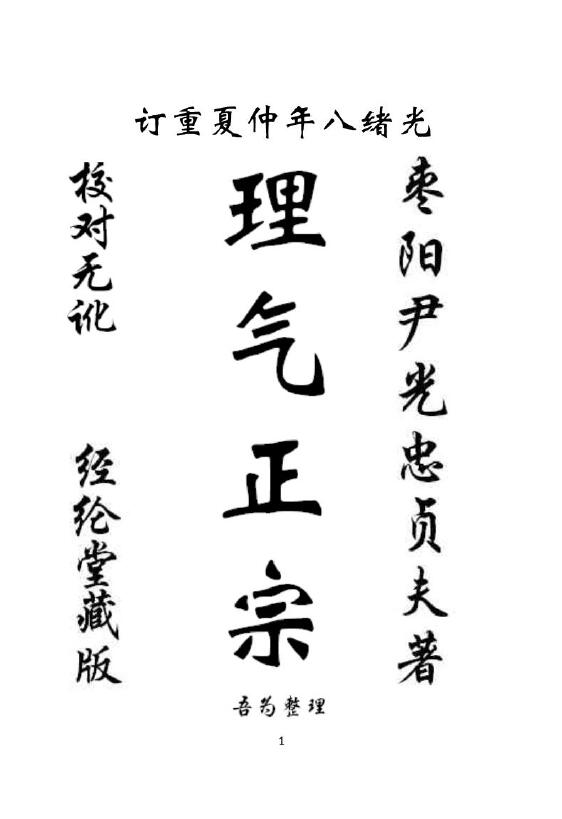 光绪八年仲夏重订
枣阳尹光忠贞夫著
理气正宗
校对无讹 经纶堂藏版
吾为整理
1